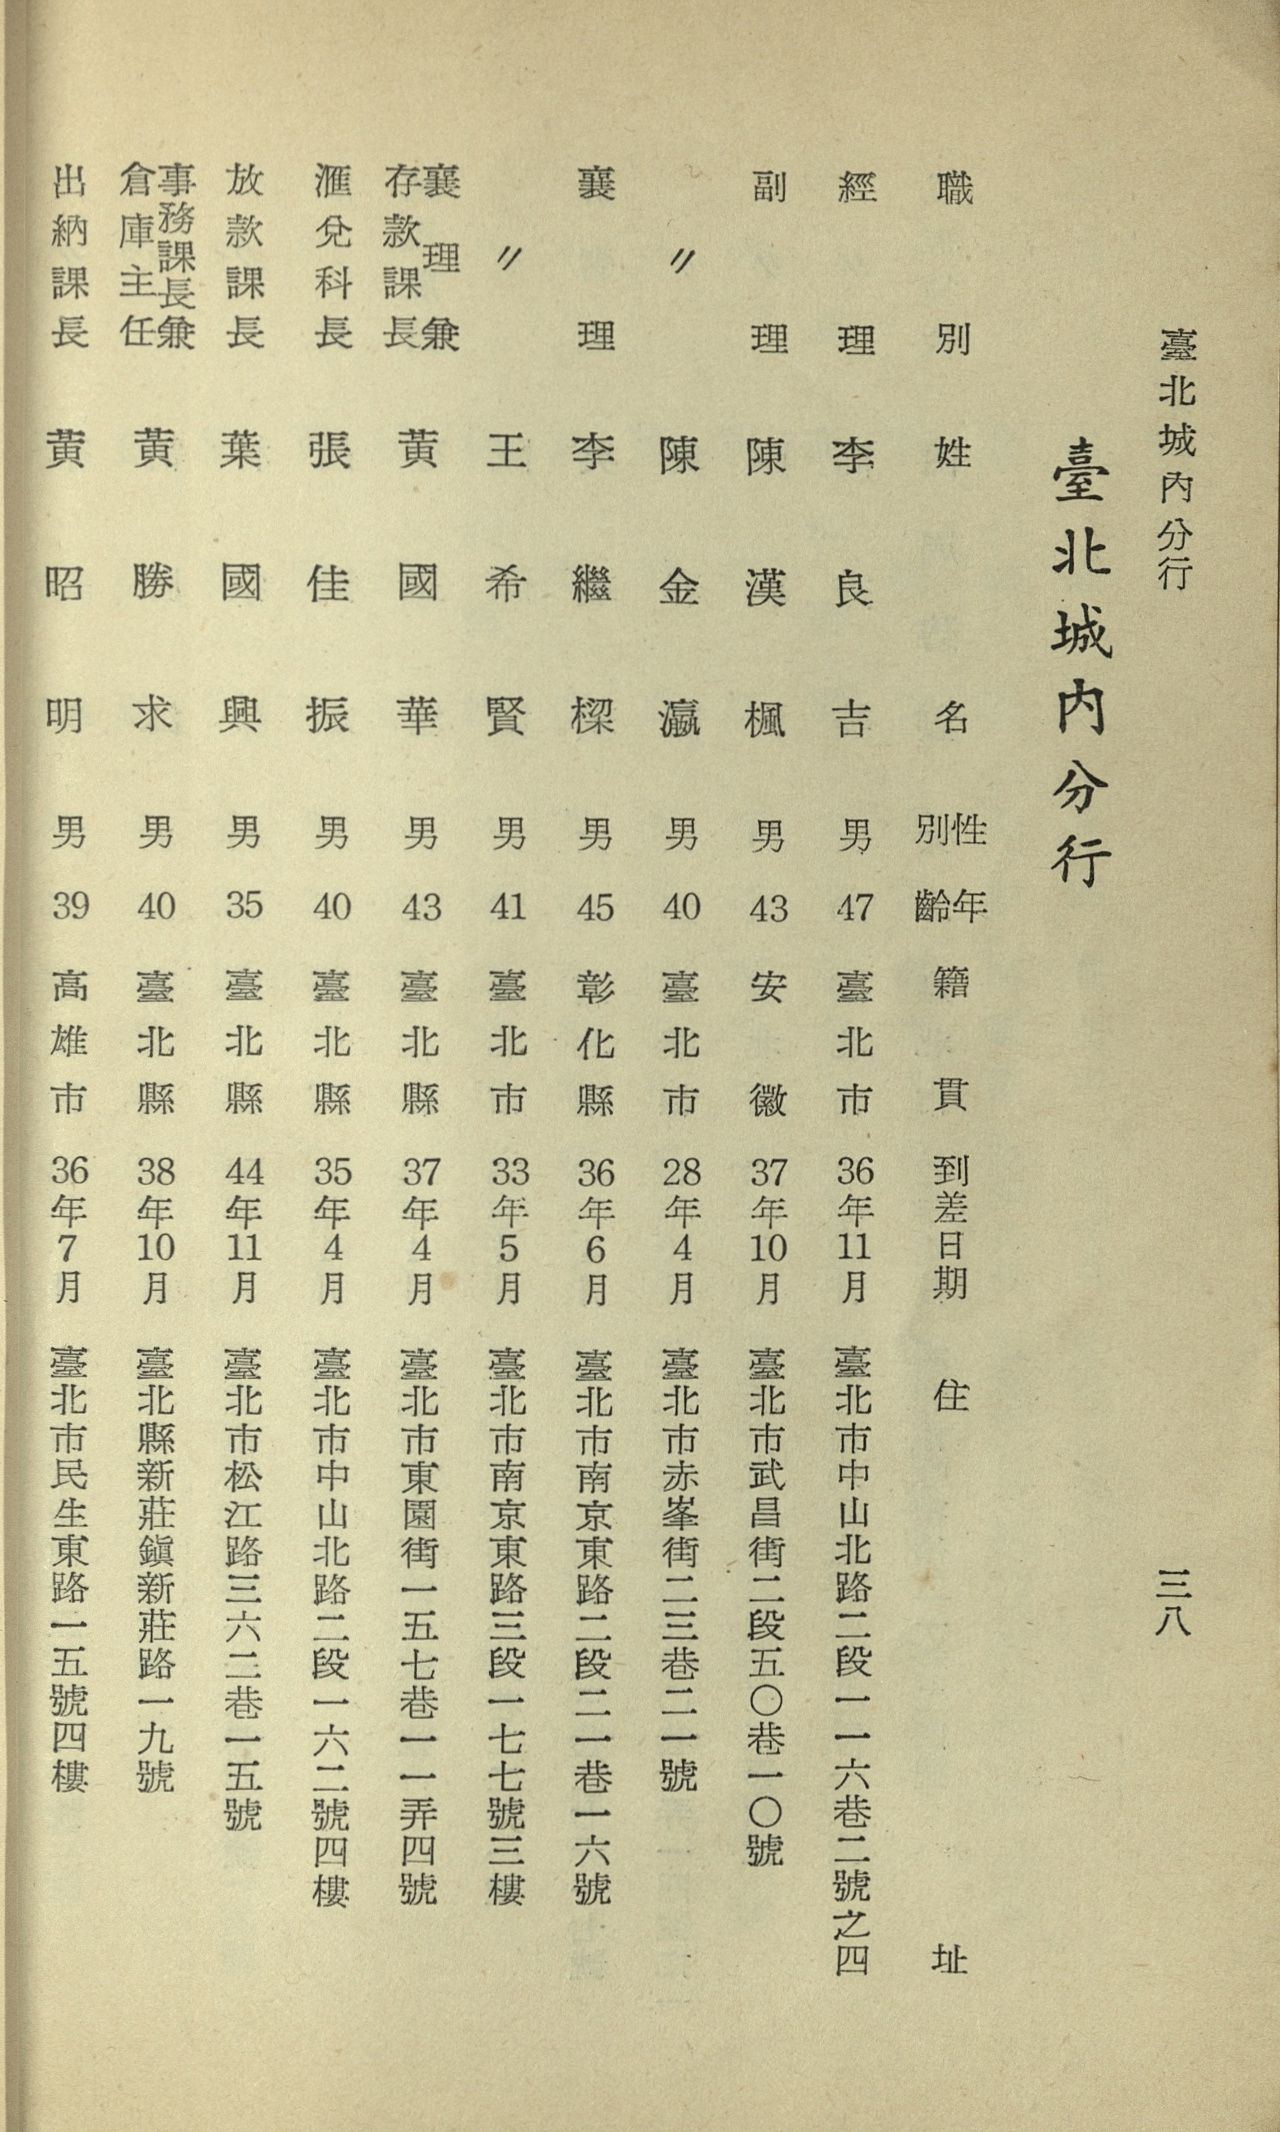 臺北城內分行 三八
臺北城內分行
職別 姓名 性別 年齡 籍貫 到差日期 住址
經理 李良吉 男 47 臺北市 36年11月 臺北市中山北路二段一一六巷二號之四
副理 陳漢楓 男 43 安徽 37年10月 臺北市武昌街二段五〇巷一〇號
〃 陳金瀛 男 40 臺北市 28年4月 臺北市赤峯街二三巷二一號
襄理 李繼樑 男 45 彰化縣 36年6月 臺北市南京東路二段二一巷一六號
〃 王希賢 男 41 臺北市 33年5月 臺北市南京東路三段一七七號三樓
襄理兼存款課長 黃國華 男 43 臺北縣 37年4月 臺北市東園街一五七巷一一弄四號
滙兌科長 張佳振 男 40 臺北縣 35年4月 臺北市中山北路二段一六二號四樓
放款課長 葉國興 男 35 臺北縣 44年11月 臺北市松江路三六二巷一五號
事務課長兼倉庫主任 黃勝求 男 40 臺北縣 38年10月 臺北縣新莊鎭新莊路一九號
出納課長 黃昭明 男 39 高雄市 36年7月 臺北市民生東路一五號四樓